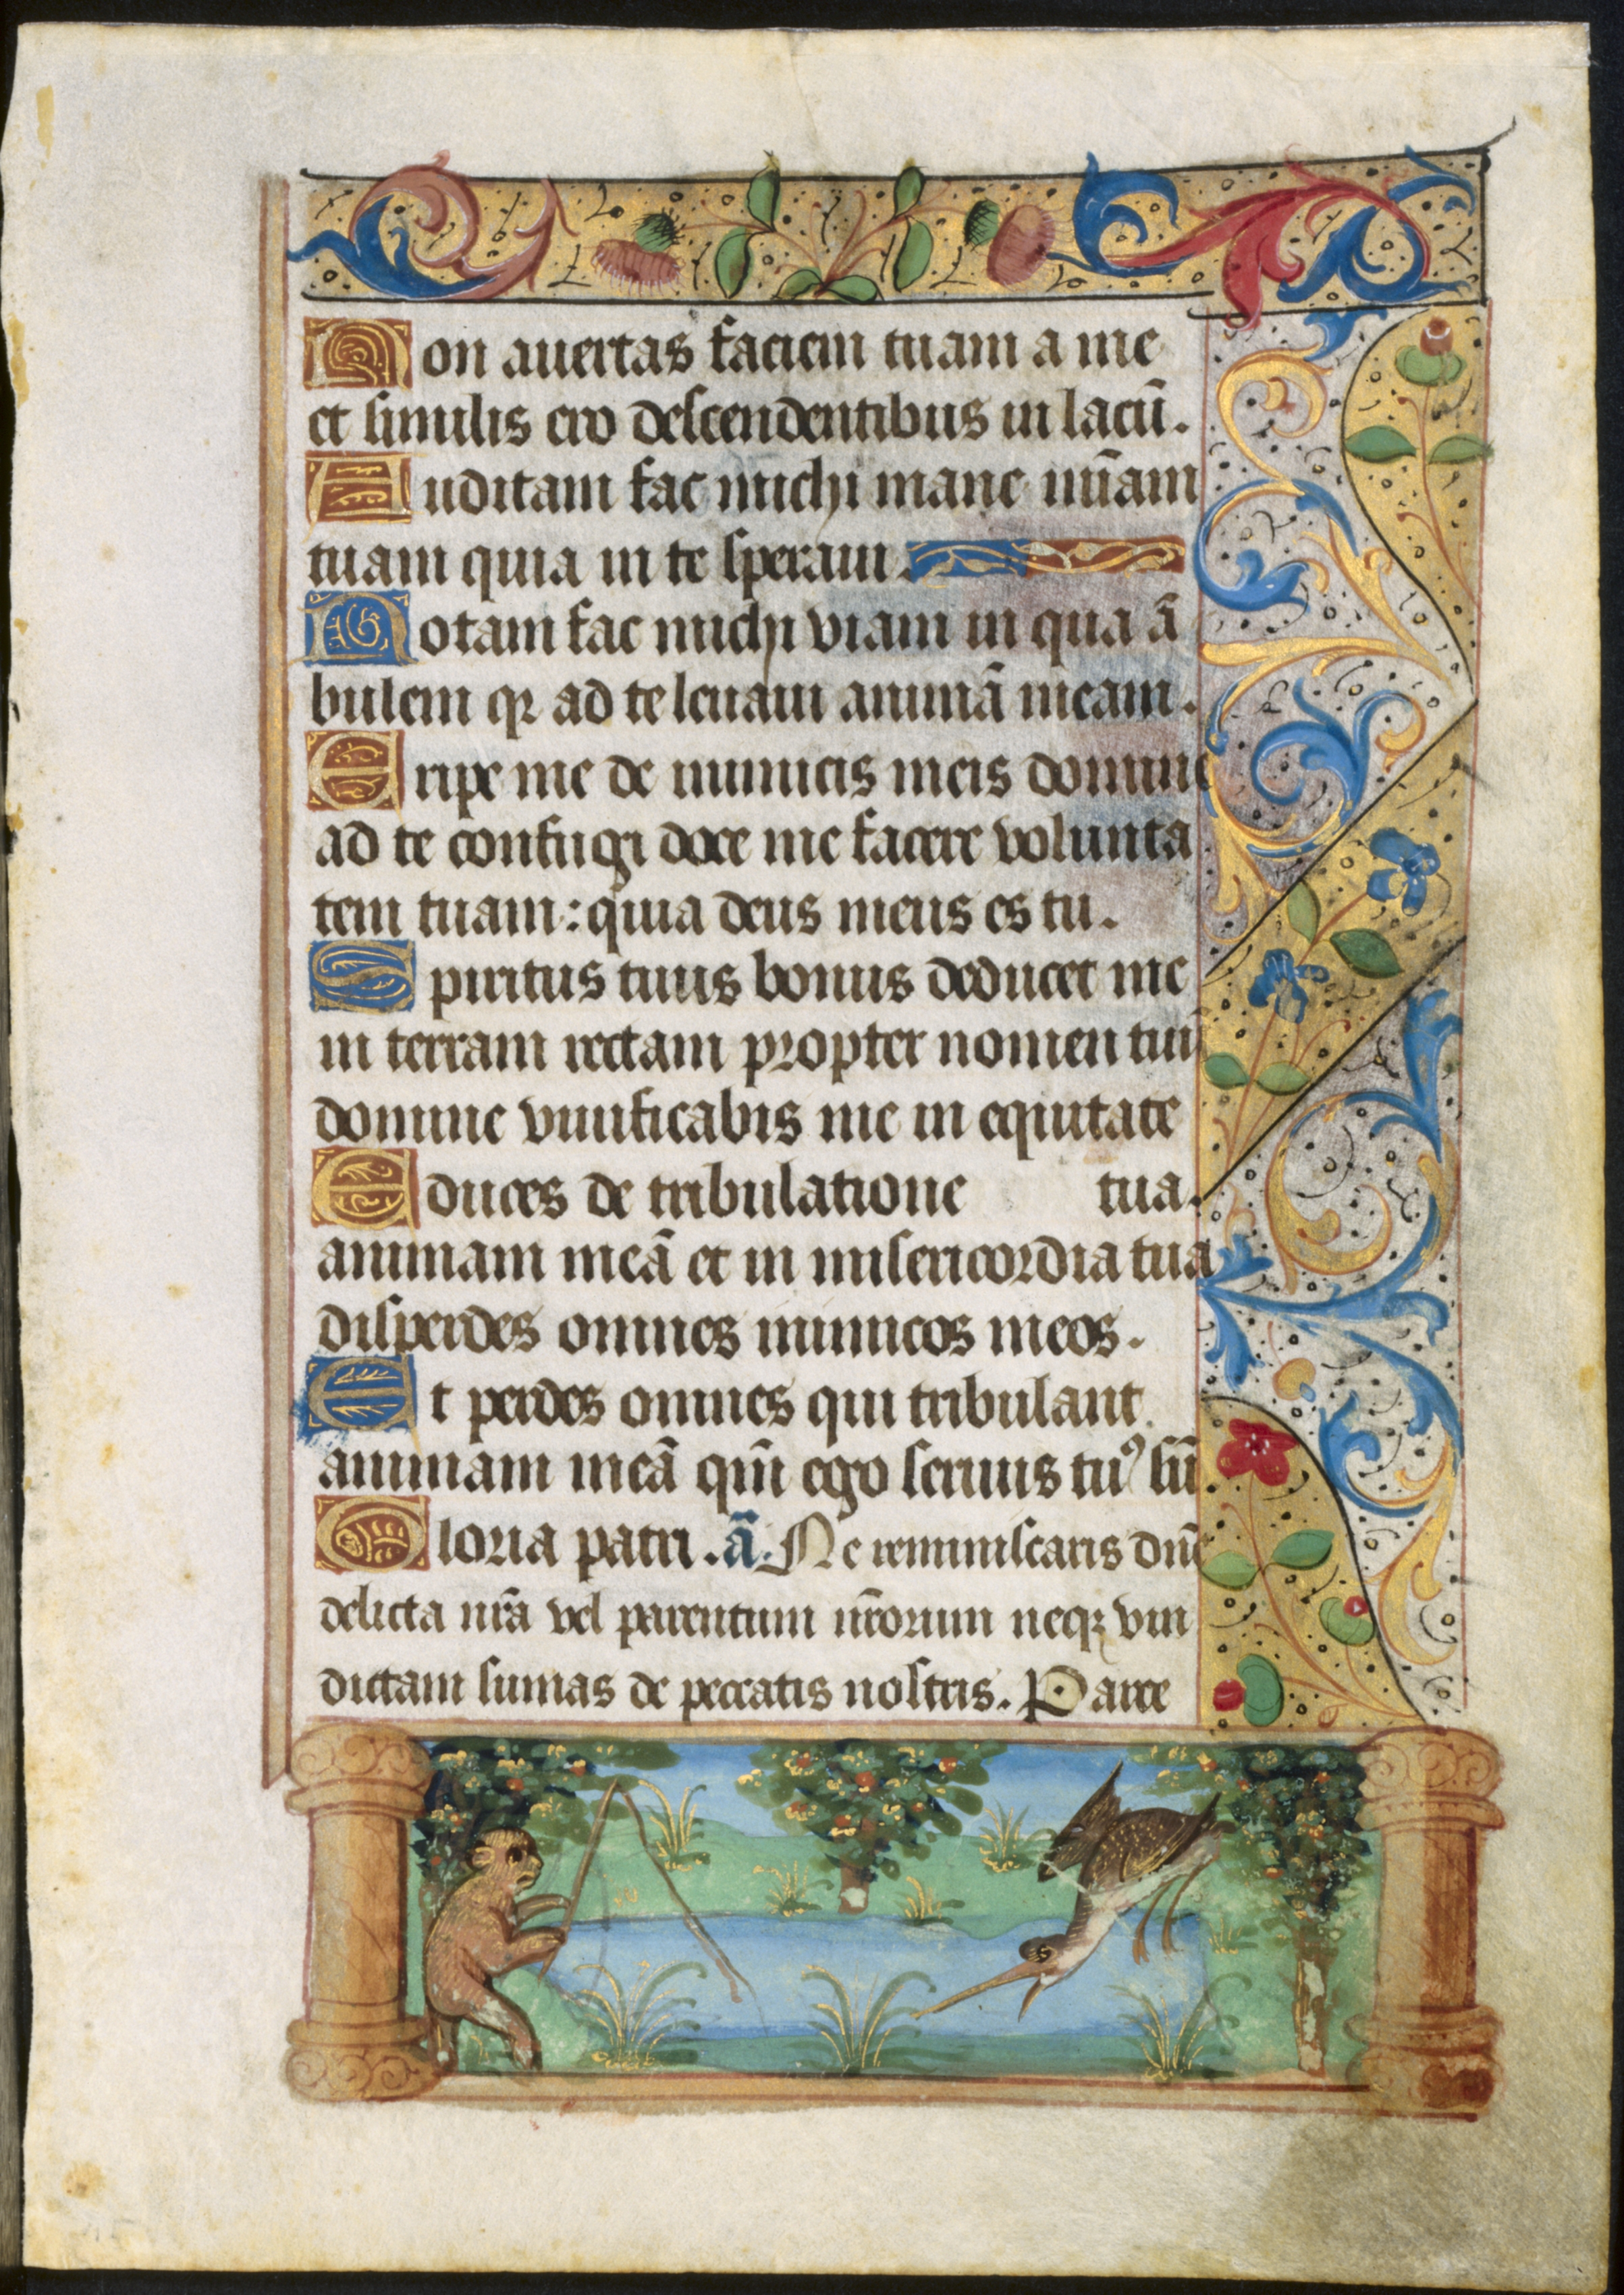 Non auertas faciem tuam a me
et similis ero descendentibus in lacū.
Auditam fac michi mane mīam
tuam quia in te speraui.
Notam fac michi viam in qua ā
bulem qꝛ ad te leuaui animā meam.
Eripe me de inimicis meis domine
ad te confugi doce me facere volunta
tem tuam: quia deus meus es tu.
Spiritus tuus bonus deducet me
in terram rectam propter nomen tuū
domine viuificabis me in equitate
Educes de tribulatione tua.
animam meā et in misericordia tua
disperdes omnes inimicos meos.
Et perdes omnes qui tribulant
animam meā qm̄ ego seruus tuꝰ sū.
Gloria patri. ā. Ne reminiscaris dn̄e
delicta nr̄a vel parentum nr̄orum neqꝫ vin
dictam sumas de peccatis nostris. Parce